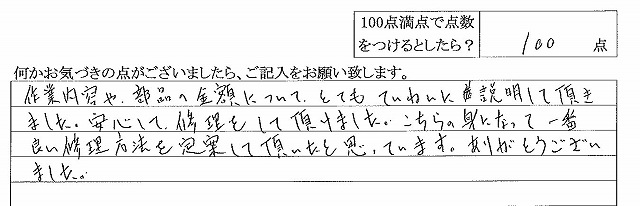 100点満点で点数
をつけるとしたら？ 100 点
何かお気づきの点がございましたら、ご記入をお願い致します。
作業内容や、部品の金額について、とても ていねいに 説明して頂き
ました。安心して、修理をして頂けました。こちらの身になって一番
良い修理方法を提案して頂いたと思っています。ありがとうござい
ました。